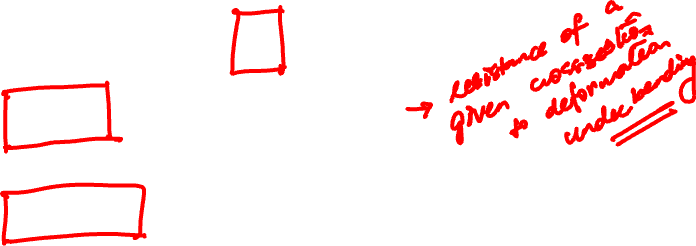 → resistance of a
given cross-section
to deformation
under bending